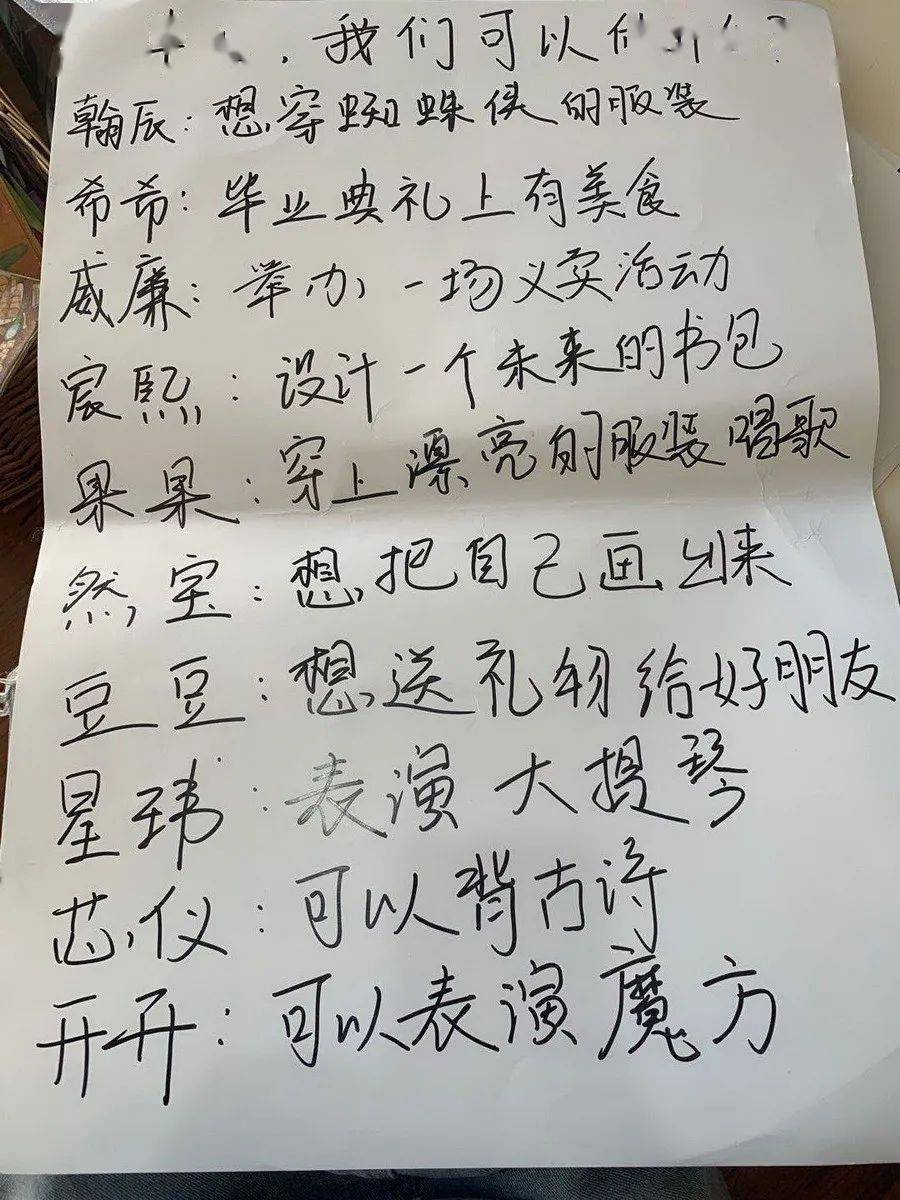 ，我们可以
翰辰：想穿蜘蛛侠的服装
希希：毕业典礼上有美食
威廉：举办一场义卖活动
宸熙：设计一个未来的书包
果果：穿上漂亮的服装唱歌
然宝：想把自己画出来
豆豆：想送礼物给好朋友
星玮：表演大提琴
芯仪：可以背古诗
开开：可以表演魔方